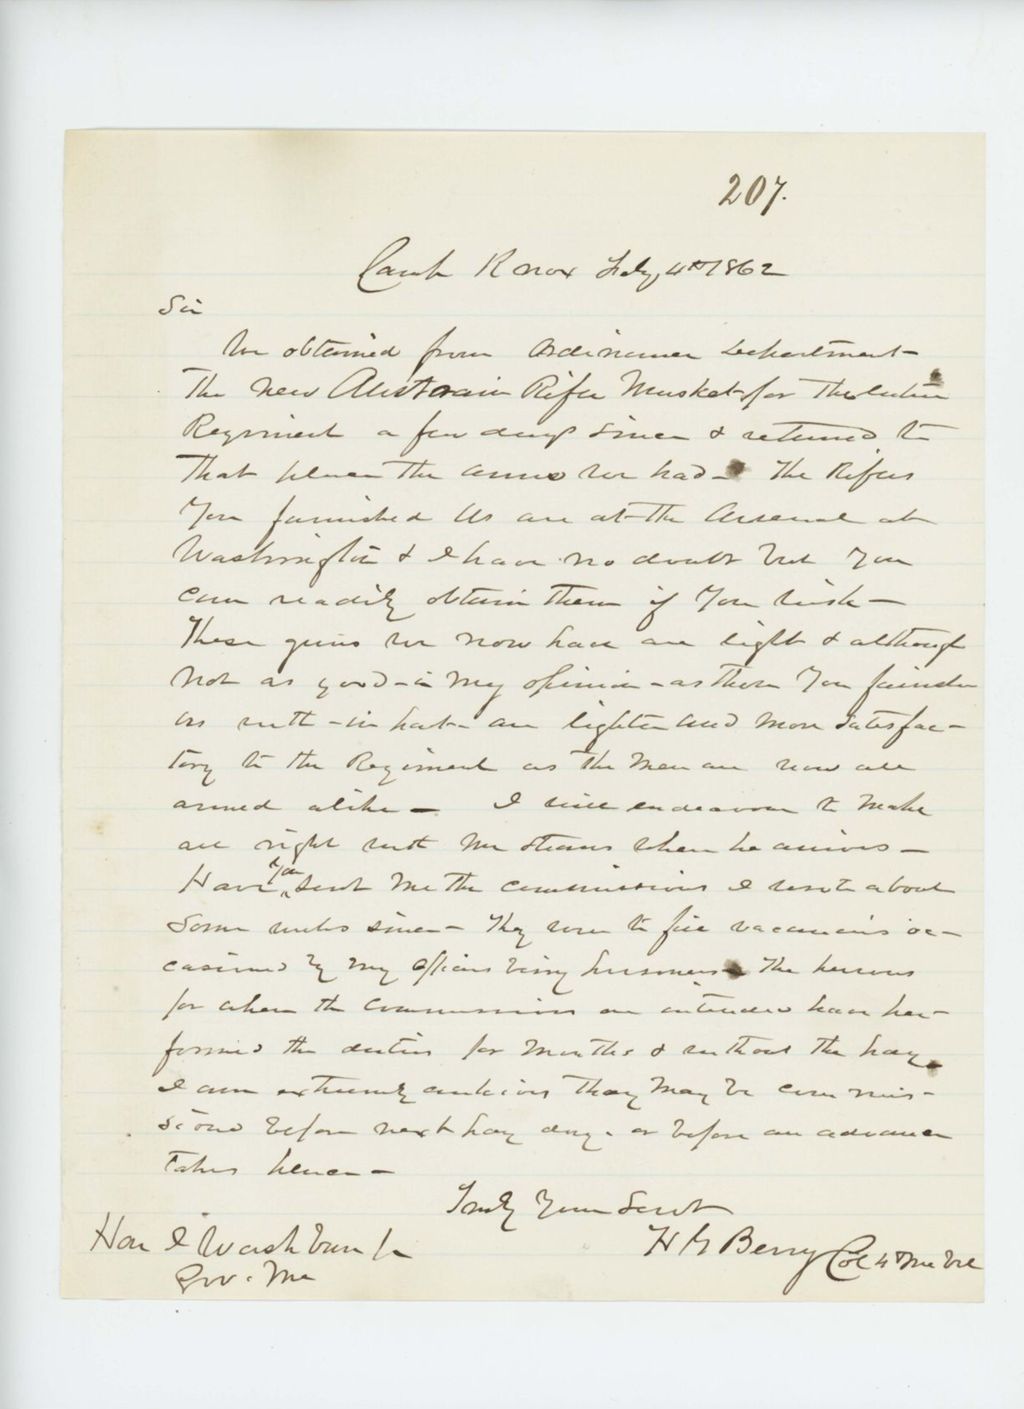 207.
Camp Knox Feby 4th 1862
Sir
We obtained from Ordinance Department
The New Austrain Rifle Musket for The entire
Regiment a few days since & returned to
That place the arms we had - The Rifles
You furnished Us are at the Arsenal at
Washington & I have no doubt but You
can readily obtain them if You wish -
These guns we now have are light & although
Not as good - in My opinion - as those You furnished
us with - in part - are lighter and More Satisfac-
tory to the Regiment as the Men are now all
armed alike - I will endeavour to Make
all right with Mr when he arrives -
Have You Sent Me the commissions I wrote about
Some weeks since - They were to fill vacancies oc-
casioned by my officers being prisoners The persons
for whom the Commissions are intended have per-
formed the duties for Months & without the pay.
I am extremely anxious They May be commis-
sioned before next pay day - or before an advance
Takes place -
Truly Your Servt
H G Berry Col 4th Me Vol
Hon I Washburn Jr
Gov. Me